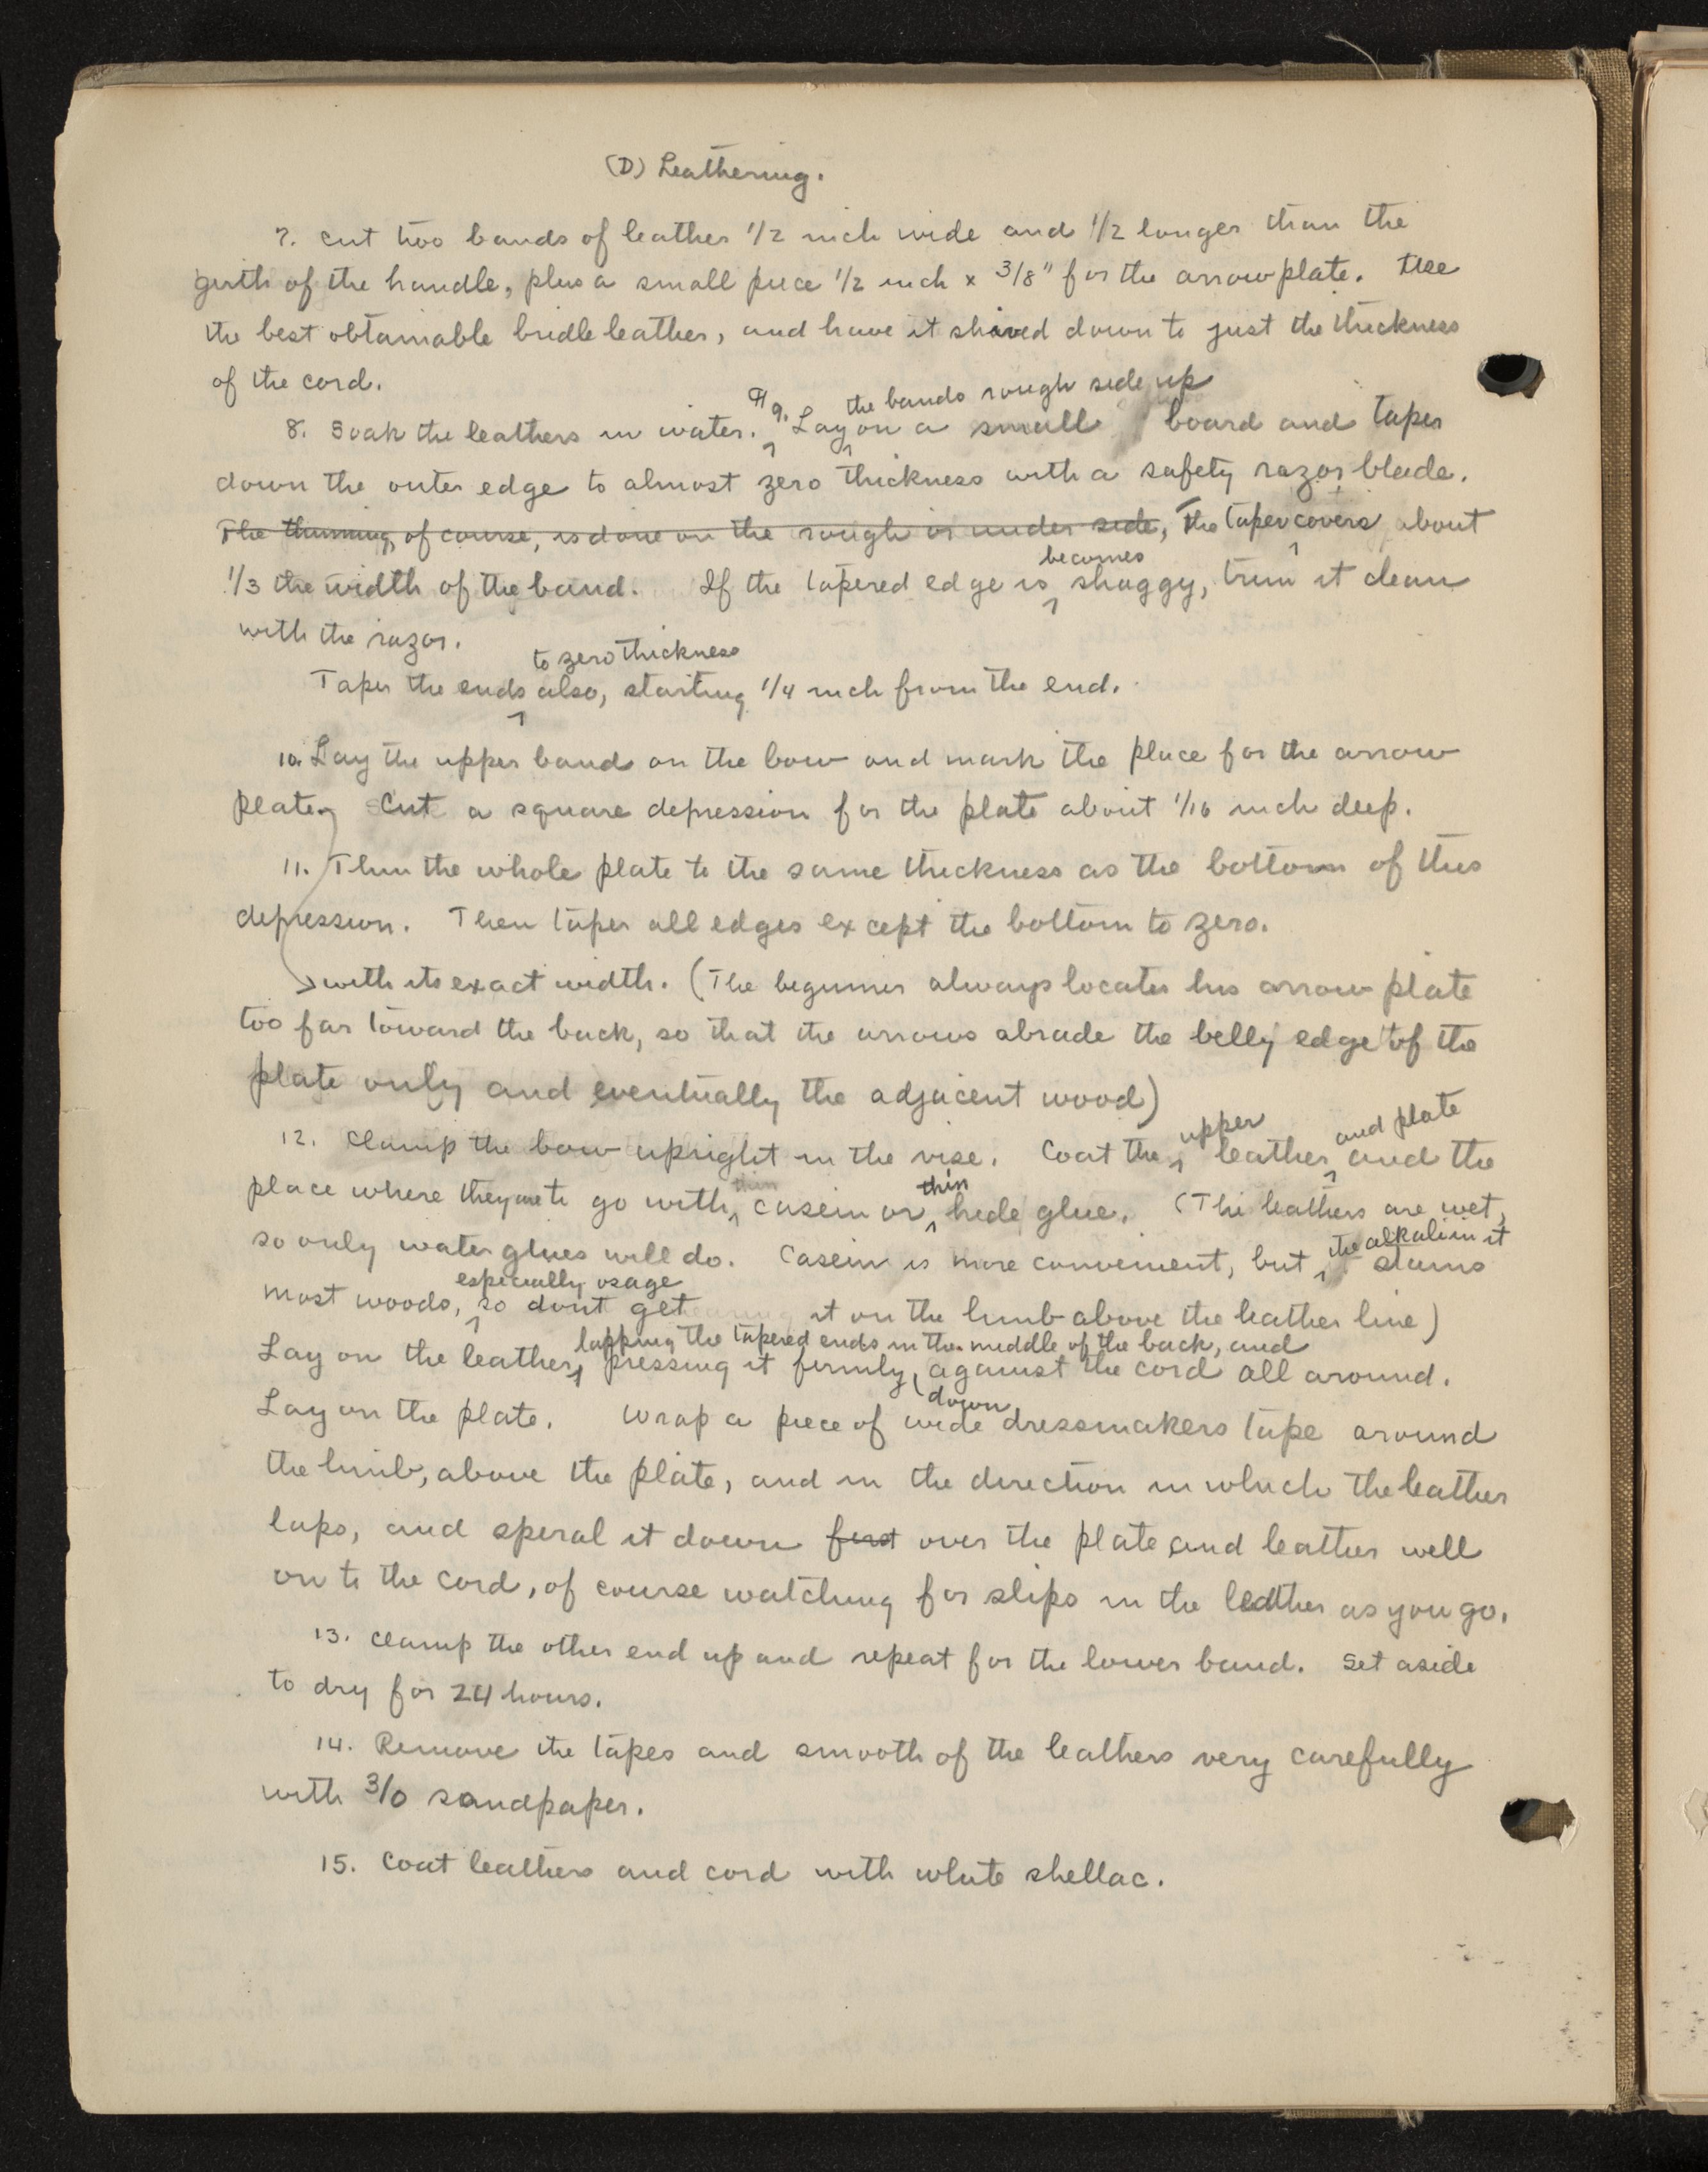 (D) Leathering.
7. Cut two bands of leather 1/2 inch wide and 1/2 longer than the
girth of the handle, plus a small piece 1/2 inch x 3/8" for the arrow plate. Use
the best obtainable bridle leather, and have it shaved down to just the thickness
of the cord.
¶ 9. the bands rough side up
8. Soak the leathers in water. Lay on a small board and taper
down the outer edge to almost zero thickness with a safety razor blade.
The thinning, of course, is done on the rough or under side, the taper covers about
becomes
1/3 the width of the band. If the tapered edge is shaggy, trim it clean
with the razor.
to zero thickness
Taper the ends also, starting 1/4 inch from the end.
10. Lay the upper band on the bow and mark the place for the arrow
plate. Cut a square depression for the plate about 1/16 inch deep.
11. Thin the whole plate to the same thickness as the bottom of this
depression. Then taper all edges except the bottom to zero.
with its exact width. (The beginner always locates his arrow plate
too far toward the back, so that the arrows abrade the belly edge of the
plate only and eventually the adjacent wood)
upper and plate
12. Clamp the bow upright in the vise. Coat the leather and the
thin thin
place where they are to go with casein or hide glue. (The leathers are wet,
so only water glues will do. Casein is more convenient, but stains
the alkali in it
especially osage
most woods, so dont get it on the limb above the leather line)
lapping the tapered ends in the middle of the back, and
Lay on the leather, pressing it firmly against the cord all around.
down
Lay on the plate. Wrap a piece of wide dressmakers tape around
the limb, above the plate, and in the direction in which the leather
laps, and spiral it down first over the plate and leather well
on to the cord, of course watching for slips in the leather as you go.
13. Clamp the other end up and repeat for the lower band. Set aside
to dry for 24 hours.
14. Remove the tapes and smooth of the leathers very carefully
with 3/0 sandpaper.
15. Coat leathers and cord with white shellac.